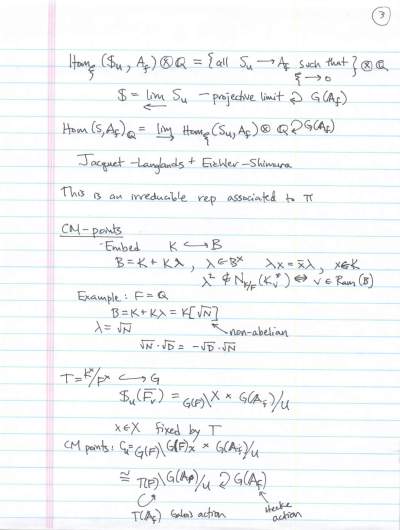 3
Hom_ξ ($_u, A_f) ⊗ Q = {all S_u → A_f such that ξ → 0} ⊗ Q
$ = lim← S_u – projective limit ↻ G(A_f)
Hom (S, A_f)_Q = lim→ Hom_ξ (S_u, A_f) ⊗ Q ↻ G(A_f)
Jacquet-Langlands + Eichler-Shimura
This is an irreducible rep associated to π
CM-points
Embed K ↪ B
B = K + Kλ, λ ∈ B^x λx = x̄λ, x ∈ K
λ² ∉ N_{K/F} (K_v^x) ⇔ v ∈ Ram (B)
Example: F = Q
B = K + Kλ = K[√N]
λ = √N non-abelian
√N · √D = -√D · √N
T = K^x/F^x ↪ G
$_u (F̄_v) = G(F)\X × G(A_f)/U
x ∈ X fixed by T
CM points: C_u = G(F)\G(F)x × G(A_f)/U
≅ T(F)\G(A_f)/U ↻ G(A_f)
T(A_f) Galois action Hecke action